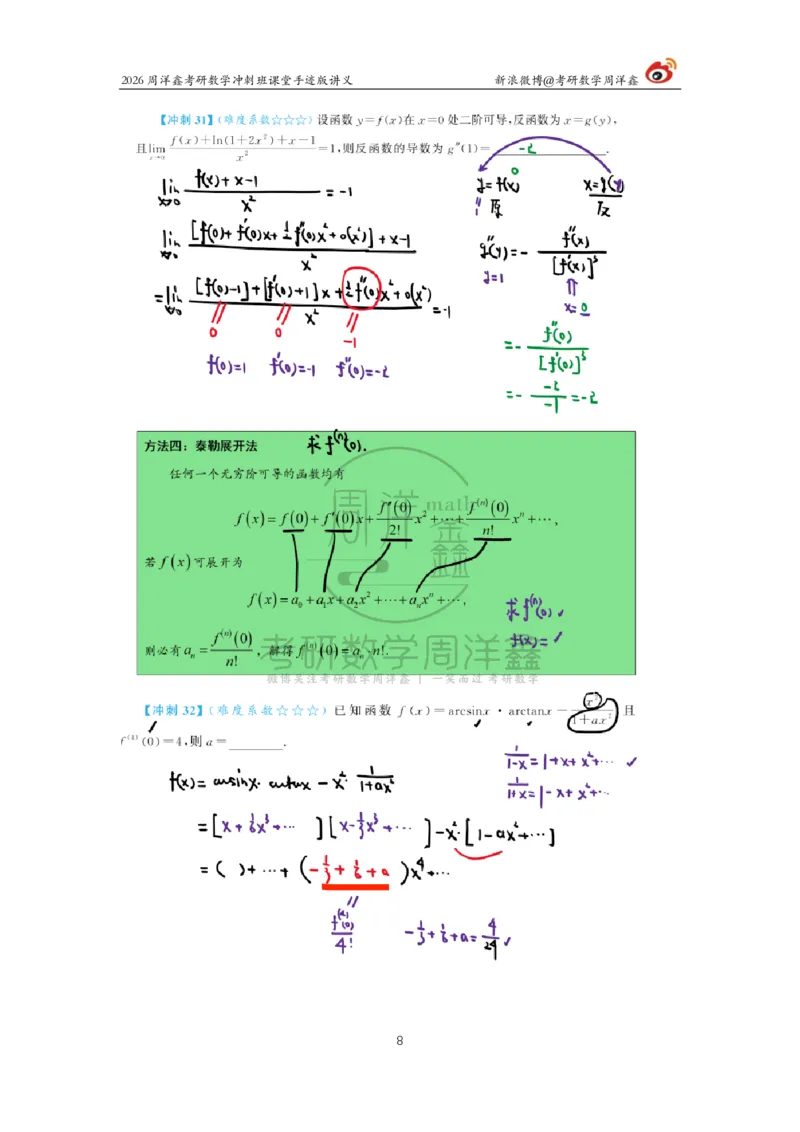 2026 周洋鑫考研数学冲刺班课堂手迹版讲义 新浪微博@考研数学周洋鑫
【冲刺 31】(难度系数☆☆☆) 设函数 y=f(x)在 x=0 处二阶可导,反函数为 x=g(y),
且lim_{x→0} (f(x)+ln(1+2x²)+x−1)/x² =1,则反函数的导数为 g″(1)= -2 .
lim_{x→0} (f(x)+x-1)/x² = -1
0
y=f(x) x=g(y)
1
lim_{x→0} ([f(0)+f'(0)x+½f''(0)x²+o(x²)]+x-1)/x²
g''(y)= - f''(x)/[f'(x)]³
y=1
x=0
=lim_{x→0} ([f(0)-1]+[f'(0)+1]x+½f''(0)x²+o(x²))/x² =-1
0 0 -1
f(0)=1 f'(0)=-1 f''(0)=-2
=- f''(0)/[f'(0)]³
=- (-2)/(-1) =-2
方法四：泰勒展开法 求f⁽ⁿ⁾(0).
任何一个无穷阶可导的函数均有
周洋鑫 math
f(x)= f(0)+ f′(0)x+ f″(0)/2! x²+⋯+ f⁽ⁿ⁾(0)/n! xⁿ+⋯ ,
若 f(x) 可展开为
f(x)=a₀+a₁x+a₂x²+⋯+aₙxⁿ+⋯ ,
求f⁽ⁿ⁾(0) ✓
f(x)= ✓
则必有 aₙ= f⁽ⁿ⁾(0)/n! ， 解得 f⁽ⁿ⁾(0)=aₙ·n!.
考研数学周洋鑫
微博关注考研数学周洋鑫 | 一笑而过 考研数学
【冲刺 32】(难度系数☆☆☆) 已知函数 f(x)=arcsinx·arctanx− x²/(1+ax²) 且
f⁽⁴⁾(0)=4,则 a=________.
1/(1-x)=1+x+x²+⋯ ✓
1/(1+x)=1-x+x²+⋯
f(x)= arcsinx·arctanx -x²·1/(1+ax²)
=[x+⅙x³+⋯ ][x-⅓x³+⋯ ]-x²·[1-ax²+⋯]
=( )+⋯+(-⅓+⅙+a )x⁴+⋯
f⁽⁴⁾(0)/4!
-⅓+⅙+a= 4/24 ✓
8